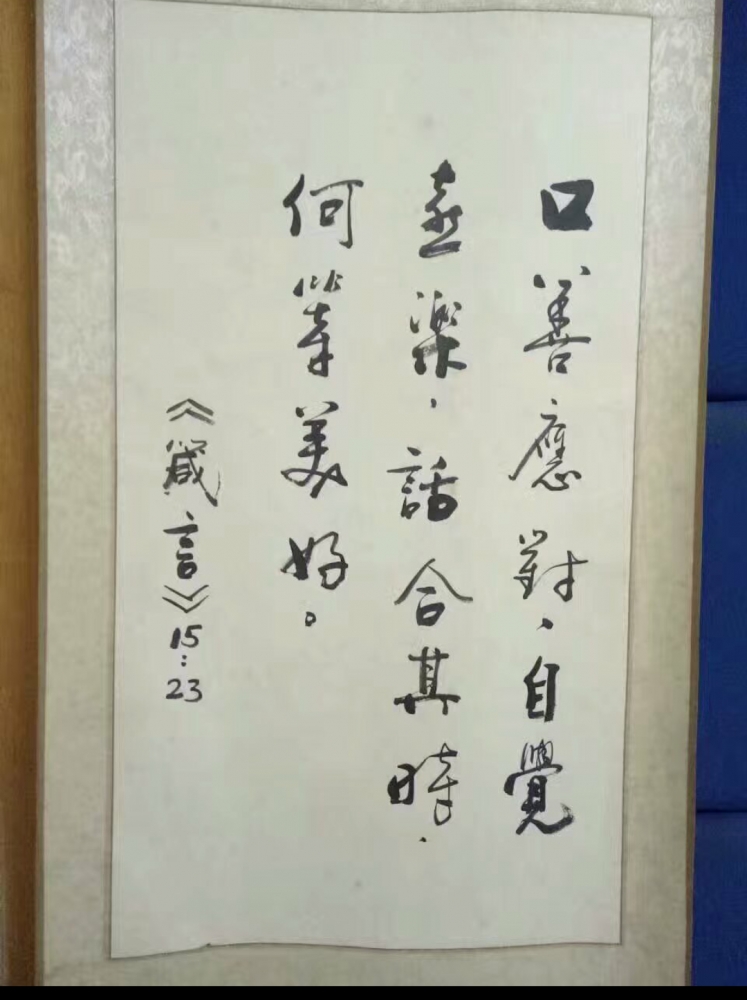 口善應對、自覺
喜樂，話合其時，
何等美好。
《箴言》15:23